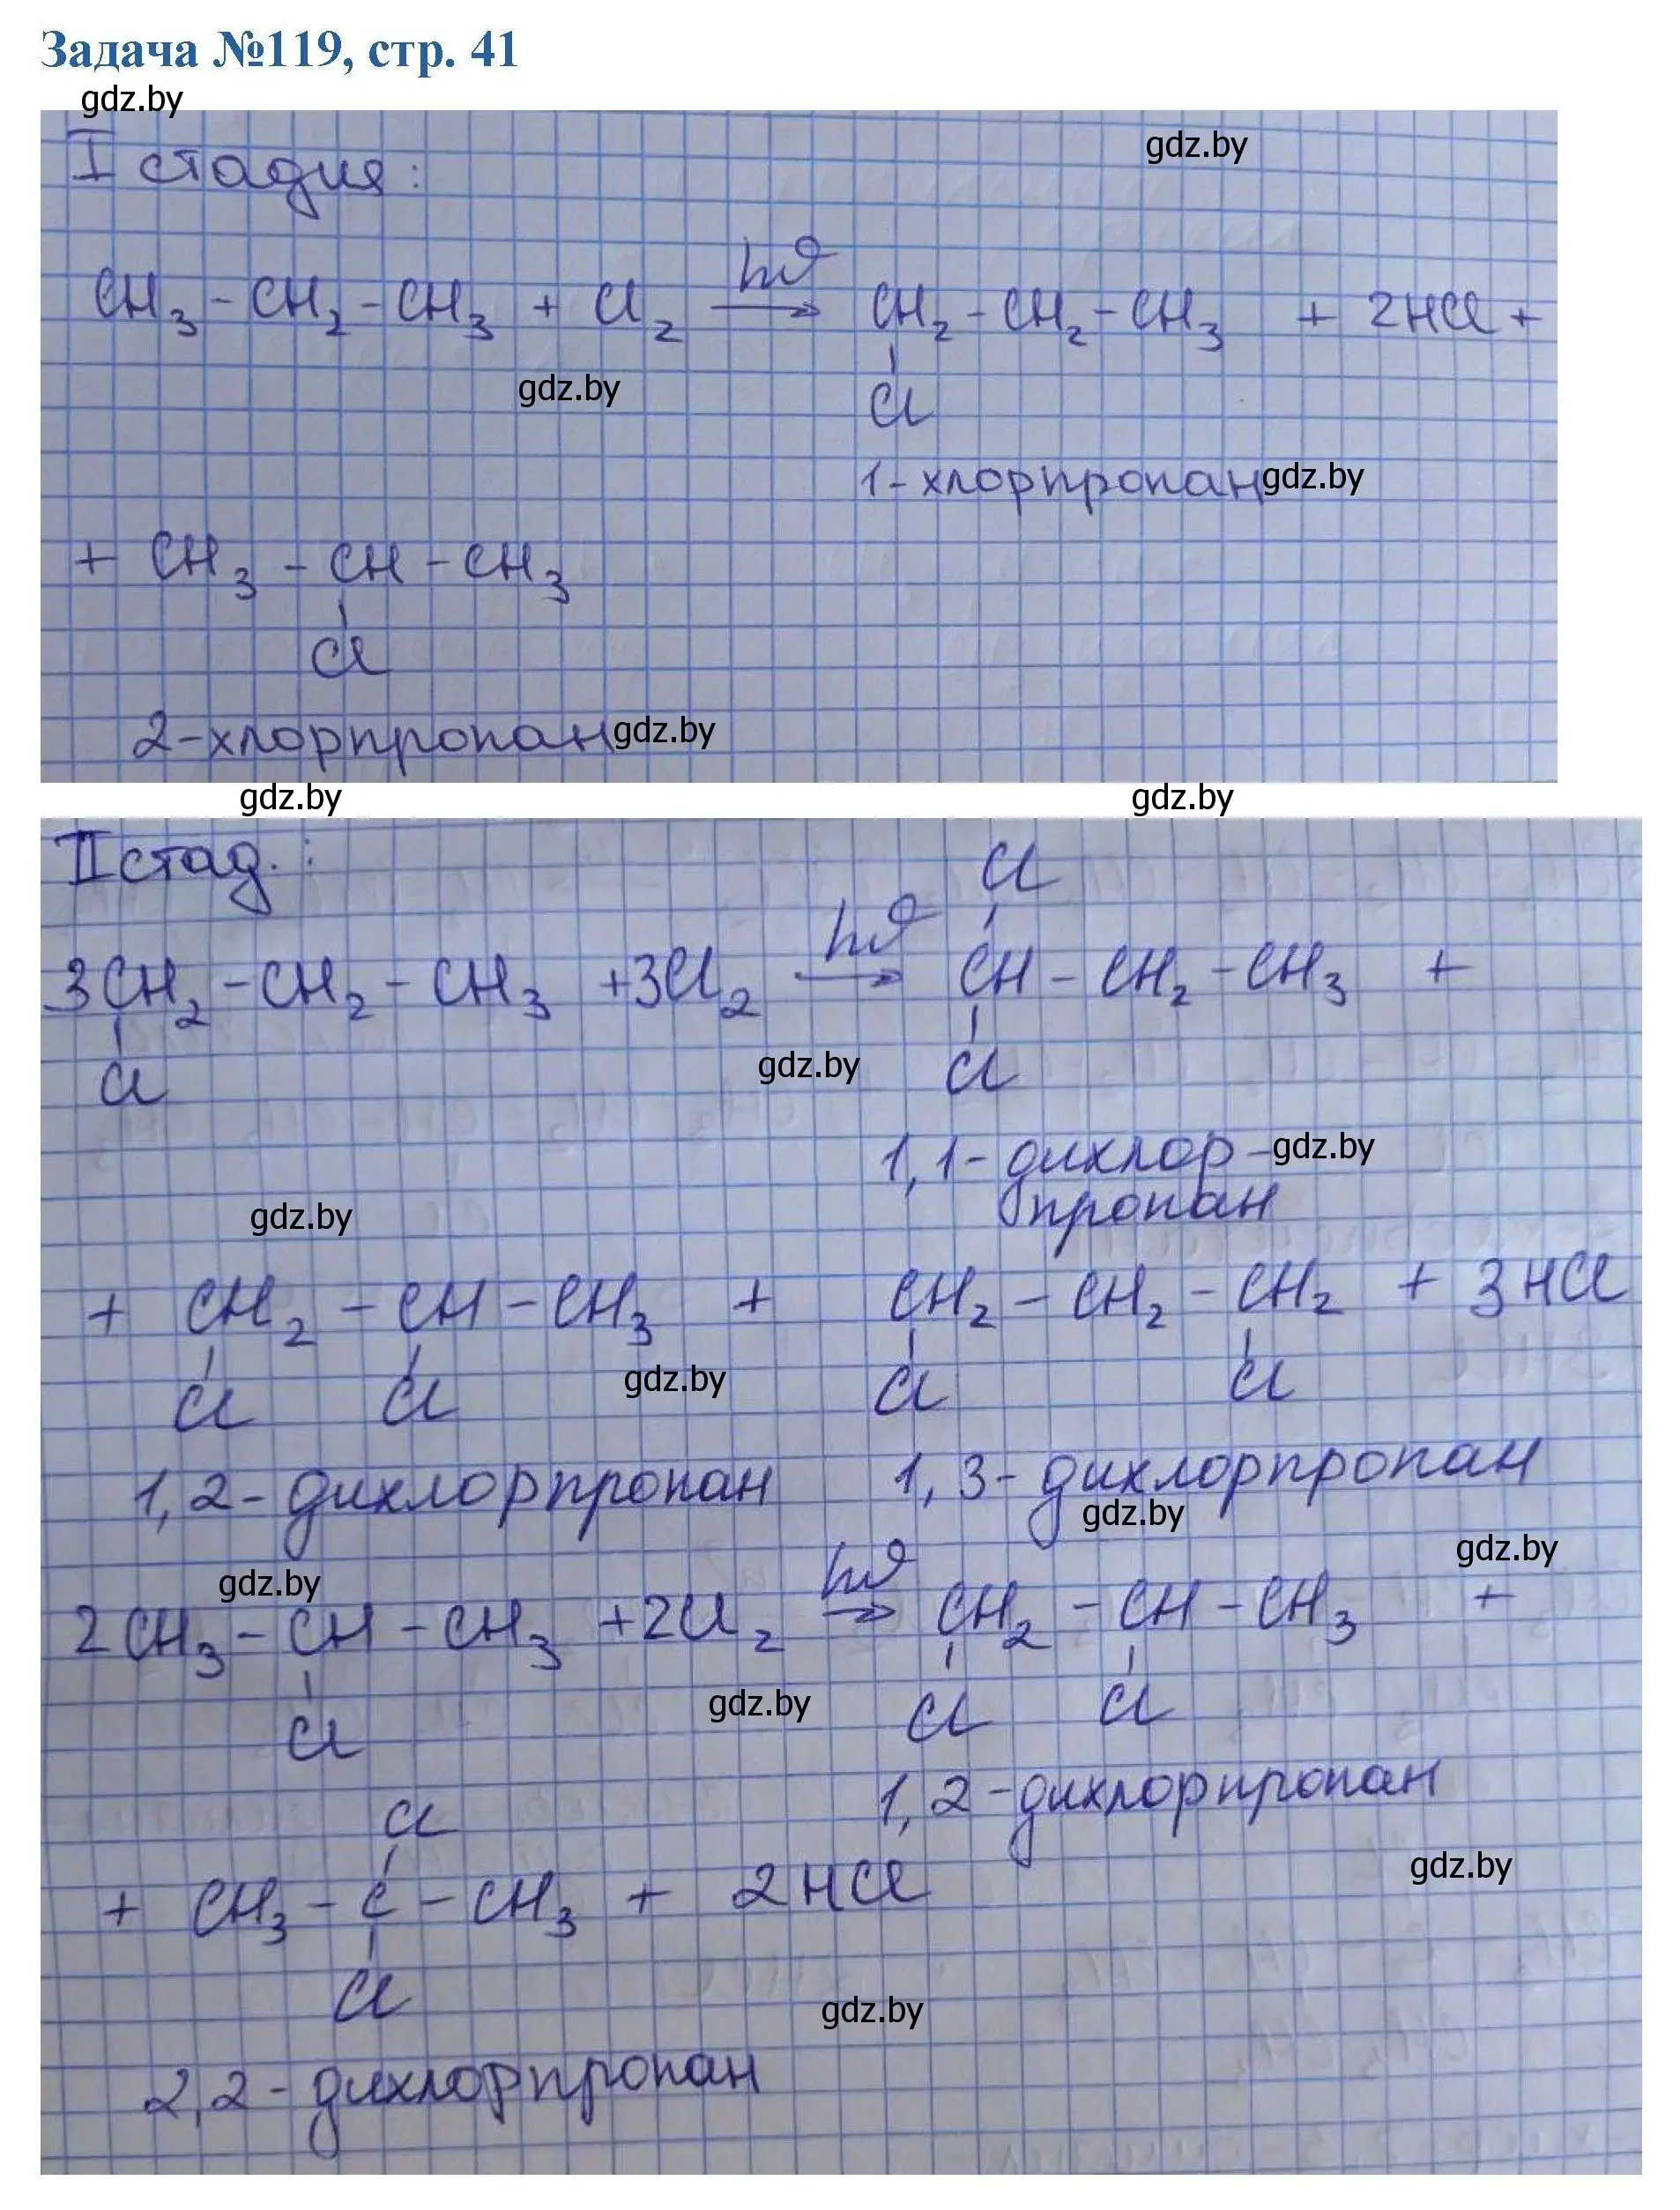 Задача №119, стр. 41
gdz.by
gdz.by
I стадия:
CH₃ - CH₂ - CH₃ + Cl₂ hϑ → CH₂ - CH₂ - CH₃ + 2HCl +
gdz.by
Cl
1-хлорпропан gdz.by
+ CH₃ - CH - CH₃
Cl
2-хлорпропан gdz.by
gdz.by gdz.by
II стад.:
Cl
3CH₂ - CH₂ - CH₃ + 3Cl₂ hϑ → CH - CH₂ - CH₃ +
Cl gdz.by Cl
1,1-дихлор- gdz.by
пропан
gdz.by
+ CH₂ - CH - CH₃ + CH₂ - CH₂ - CH₂ + 3HCl
Cl Cl gdz.by Cl Cl
1,2-дихлорпропан 1,3-дихлорпропан
gdz.by
gdz.by
gdz.by
2CH₃ - CH - CH₃ + 2Cl₂ hϑ → CH₂ - CH - CH₃ +
Cl gdz.by Cl Cl
1,2-дихлорпропан
Cl
gdz.by
+ CH₃ - C - CH₃ + 2HCl
Cl
gdz.by
2,2-дихлорпропан